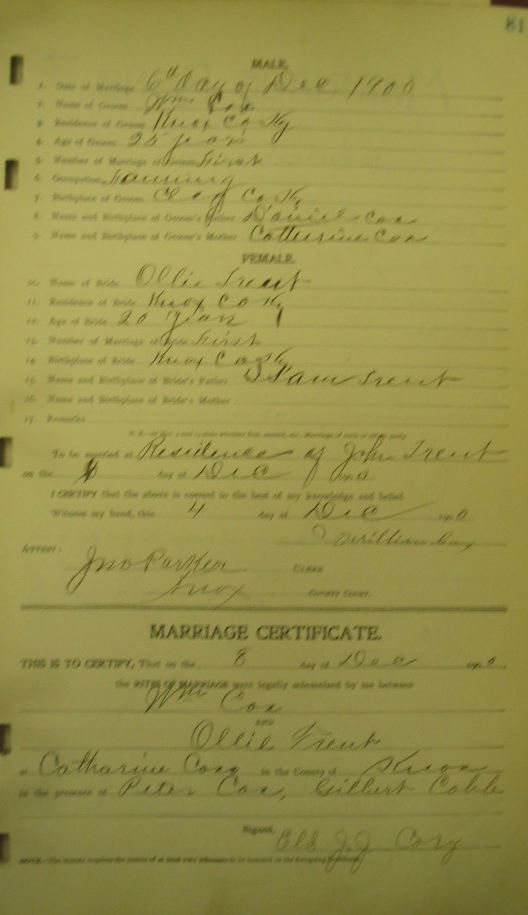 81
MALE.
1. Date of Marriage 6th day of Dec 1900
2. Name of Groom Wm Cox
3. Residence of Groom Knox Co Ky
4. Age of Groom 25 years
5. Number of Marriage of Groom First
6. Occupation
7. Birthplace of Groom Clay Co Ky
8. Name and Birthplace of Groom's Father Daniel Cox
9. Name and Birthplace of Groom's Mother Catherine Cox
FEMALE.
10. Name of Bride Ollie Trent
11. Residence of Bride Knox Co Ky
12. Age of Bride 20 years
13. Number of Marriage of Bride First
14. Birthplace of Bride Knox Co Ky
15. Name and Birthplace of Bride's Father Sam Trent
16. Name and Birthplace of Bride's Mother
17. Remarks
To be married at Residence of John Trent
on the day of Dec 190 0
I CERTIFY that the above is correct to the best of my knowledge and belief.
Witness my hand, this 4 day of Dec 190 0
William Cox
ATTEST:
Jno Parker CLERK
Knox COUNTY COURT.
MARRIAGE CERTIFICATE.
THIS IS TO CERTIFY, That on the 8 day of Dec 190 0,
the RITES OF MARRIAGE were legally solemnized by me between
Wm Cox
AND
Ollie Trent
at Catharine in the County of Knox
in the presence of Peter Cox, Gilbert Cobb
Signed, Eld J. J.